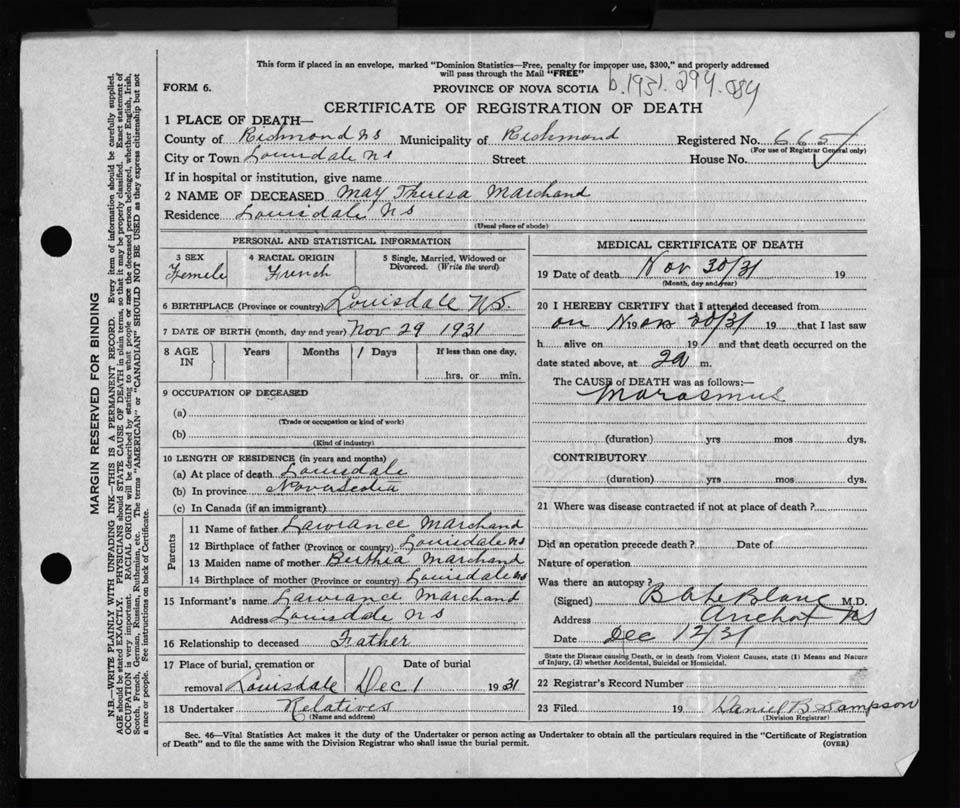 This form if placed in an envelope, marked "Dominion Statistics—Free, penalty for improper use, $300," and properly addressed
will pass through the Mail "FREE"
FORM 6.
PROVINCE OF NOVA SCOTIA b.1931.299.084
CERTIFICATE OF REGISTRATION OF DEATH
1 PLACE OF DEATH—
County of Richmond NS Municipality of Richmond Registered No. 665
(For use of Registrar General only)
City or Town Louisdale NS Street House No.
If in hospital or institution, give name
2 NAME OF DECEASED May Theresa Marchand
Residence Louisdale NS
(Usual place of abode)
PERSONAL AND STATISTICAL INFORMATION
3 SEX 4 RACIAL ORIGIN 5 Single, Married, Widowed or
Divorced. (Write the word)
Femele French
6 BIRTHPLACE (Province or country) Louisdale N.S.
7 DATE OF BIRTH (month, day and year) Nov 29 1931
8 AGE IN Years Months 1 Days If less than one day,
hrs. or min.
9 OCCUPATION OF DECEASED
(a)
(Trade or occupation or kind of work)
(b)
(Kind of industry)
10 LENGTH OF RESIDENCE (in years and months)
(a) At place of death Louisdale
(b) In province Nova Scotia
(c) In Canada (if an immigrant)
Parents
11 Name of father Lawrance Marchand
12 Birthplace of father (Province or country) Louisdale NS
13 Maiden name of mother Berthia Marchand
14 Birthplace of mother (Province or country) Louisdale NS
15 Informant's name Lawrance Marchand
Address Louisdale NS
16 Relationship to deceased Father
17 Place of burial, cremation or Date of burial
removal Louisdale Dec 1 1931
18 Undertaker Relatives
(Name and address)
MEDICAL CERTIFICATE OF DEATH
19 Date of death Nov 30/31 19
(Month, day and year)
20 I HEREBY CERTIFY that I attended deceased from
on Nov 30/31 19 that I last saw
h alive on 19 and that death occurred on the
date stated above, at 2a m.
The CAUSE of DEATH was as follows:—
Marasmus
(duration) yrs mos dys.
CONTRIBUTORY
(duration) yrs mos dys.
21 Where was disease contracted if not at place of death?
Did an operation precede death? Date of
Nature of operation
Was there an autopsy?
(Signed) B A LeBlanc M.D.
Address Arichat NS
Date Dec 12/31
State the Disease causing Death, or in death from Violent Causes, state (1) Means and Nature
of Injury, (2) whether Accidental, Suicidal or Homicidal.
22 Registrar's Record Number
23 Filed 19 Daniel B Sampson
(Division Registrar)
Sec. 46—Vital Statistics Act makes it the duty of the Undertaker or person acting as Undertaker to obtain all the particulars required in the "Certificate of Registration
of Death" and to file the same with the Division Registrar who shall issue the burial permit. (OVER)
MARGIN RESERVED FOR BINDING
N.B.—WRITE PLAINLY WITH UNFADING INK—THIS IS A PERMANENT RECORD. Every item of information should be carefully supplied.
AGE should be stated EXACTLY. PHYSICIANS should STATE CAUSE OF DEATH in plain terms, so that it may be properly classified. Exact statement of
OCCUPATION is very important. RACIAL ORIGIN will be described by stating to what people or race the deceased person belonged, whether English, Irish,
Scotch, French, German, Russian, Ruthenian, etc. The terms "AMERICAN" or "CANADIAN" SHOULD NOT BE USED as they express citizenship but not
a race or people. See instructions on back of Certificate.